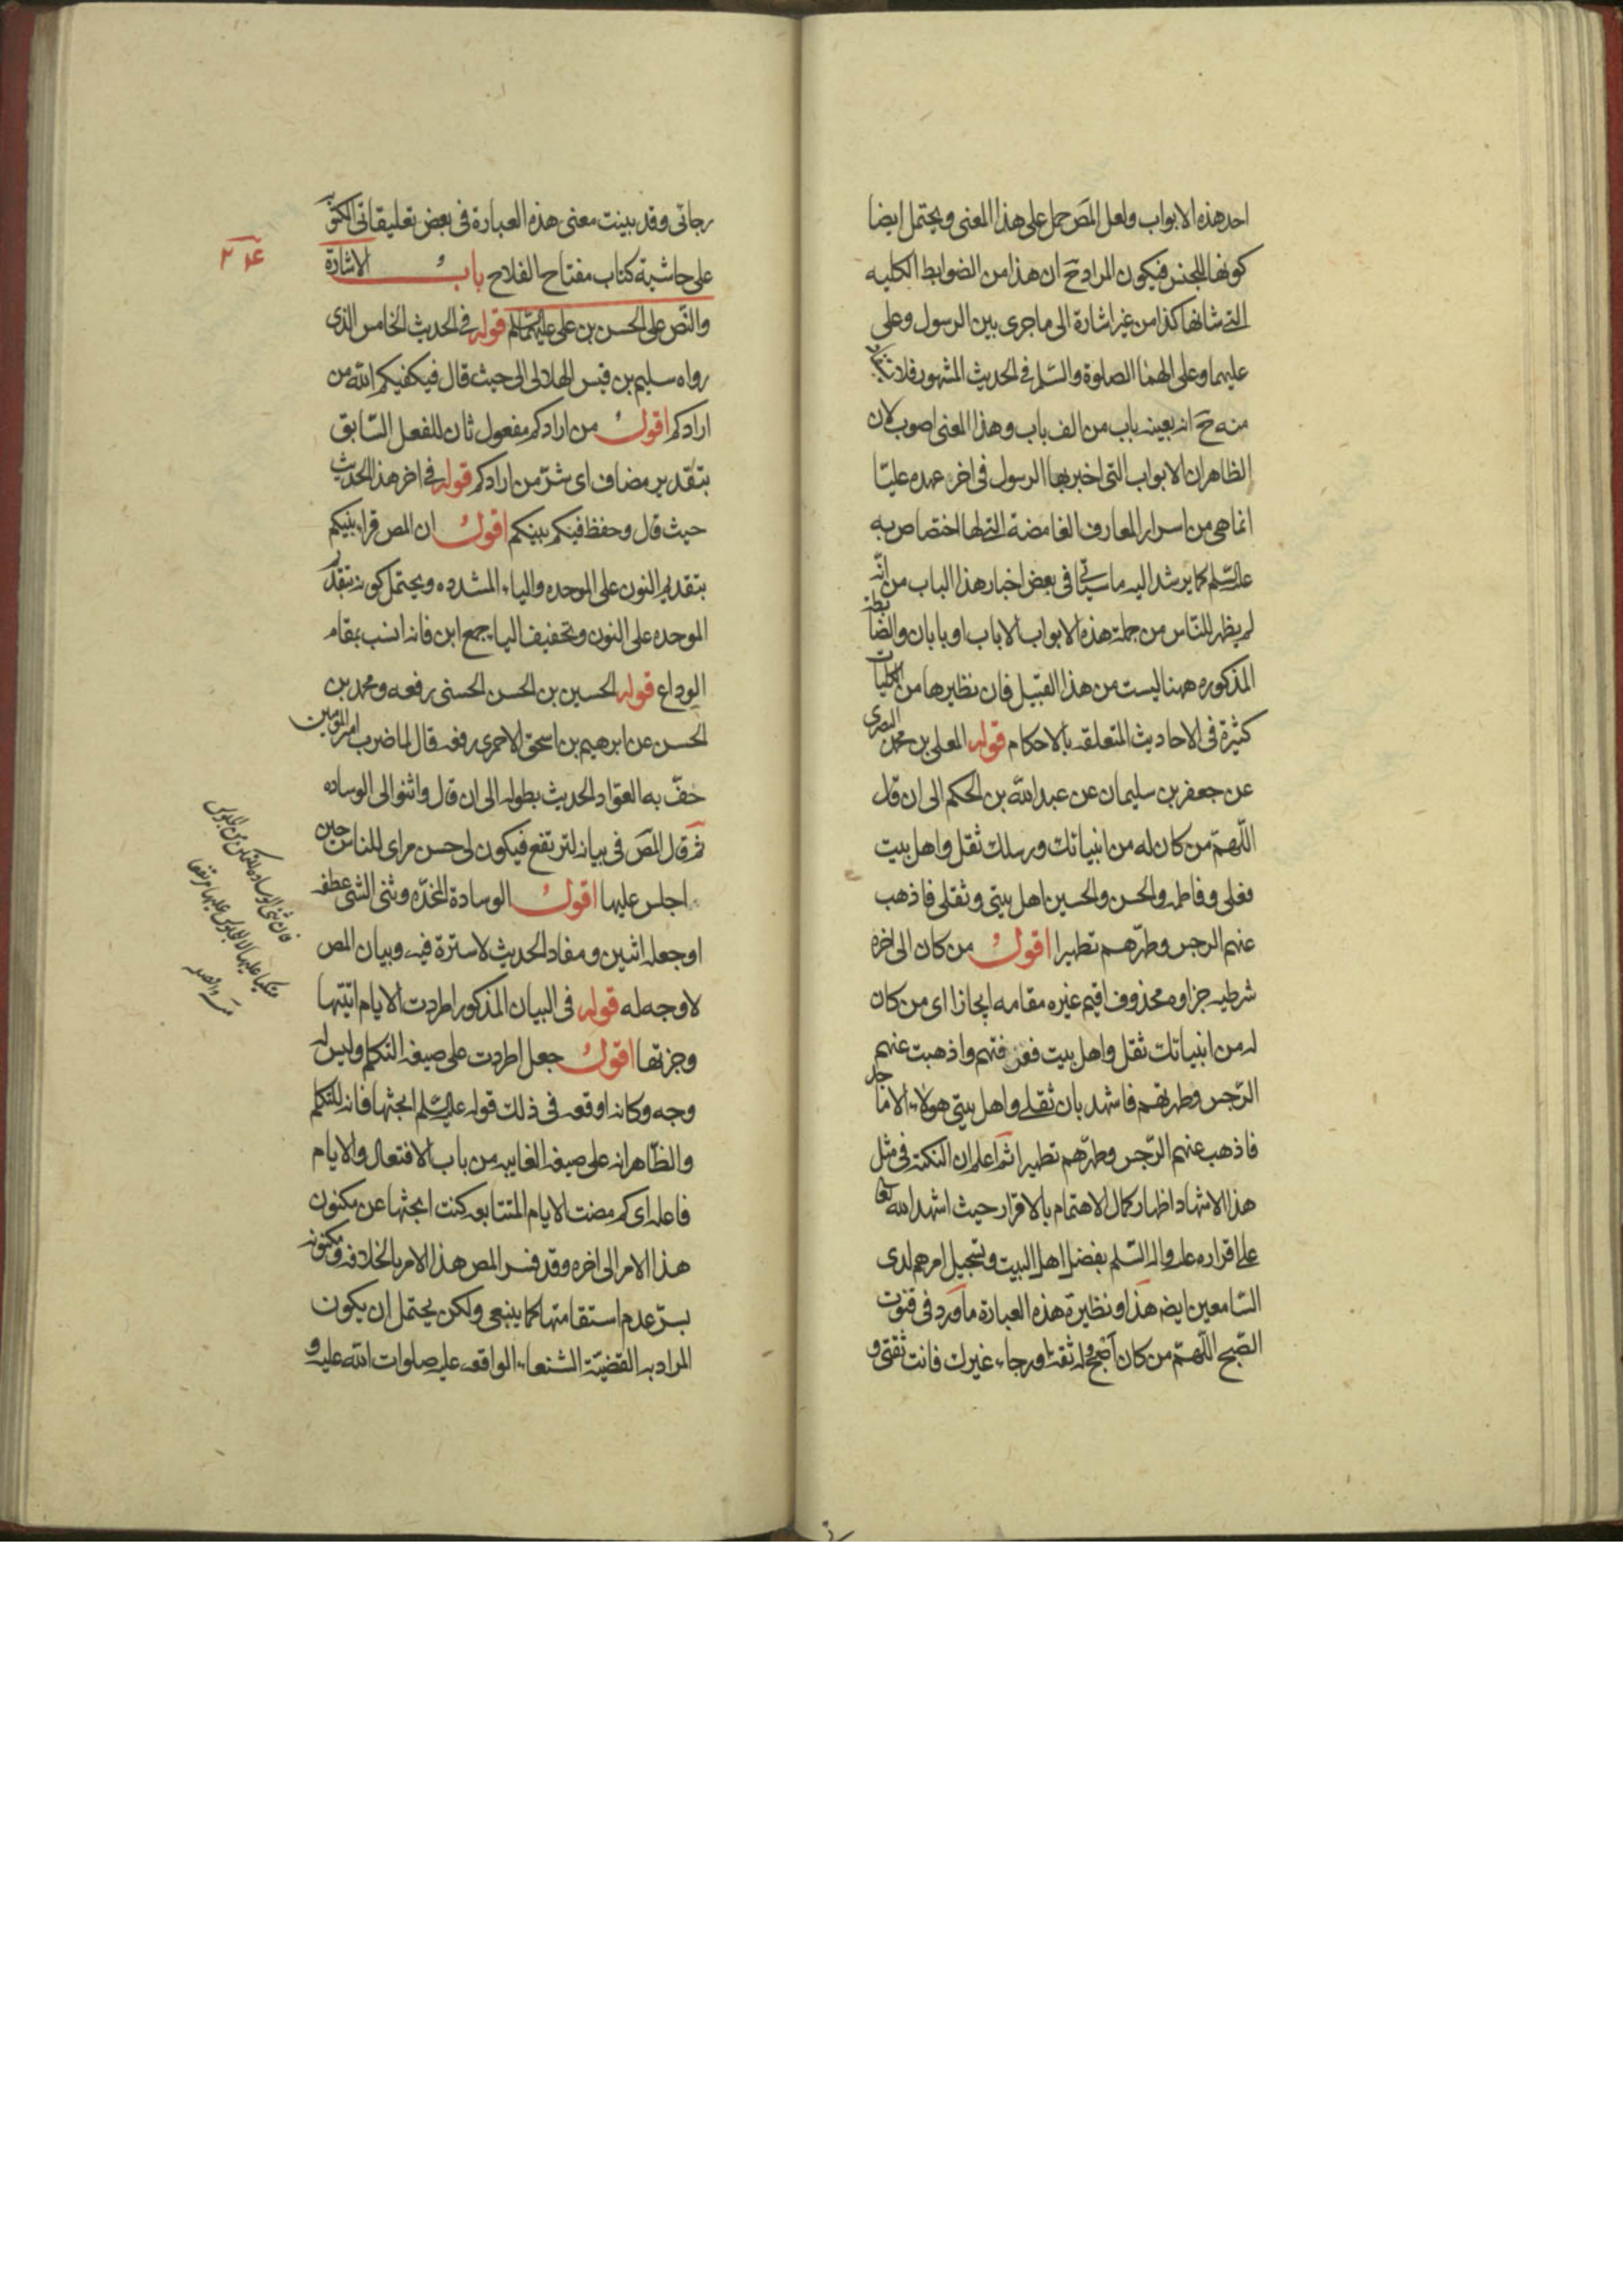 احد هذه الابواب ولعل المص حمل على هذا المعنى ويحتمل ايضا
كونها للجنس فيكون المراد ح ان هذا من الضوابط الكليه
التى شانها كذا من غير اشارة الى ما جرى بين الرسول وعلى
عليهما وعلى الهما الصلوة والسلم فى الحديث المشهور فلا
منه ح انه بعينه باب من الف باب وهذا المعنى اصوب لان
الظاهر ان الابواب التى اخبر بها الرسول فى اخر عهده عليا
انما هى من اسرار المعارف الغامضة التى لها اختصاص به
عليه السلم كما يرشد اليه ما سياتى فى بعض اخبار هذا الباب من انه
لم يظهر للناس من جملة هذه الابواب الا باب او بابان والضابطة
المذكوره ههنا ليست من هذا القبيل فان نظيرها من الكليات
كثيرة فى الاحاديث المتعلقه بالاحكام قوله المعلى بن محمد البصرى
عن جعفر بن سليمان عن عبد الله بن الحكم الى ان قال
اللهم من كان له من انبيائك ورسلك ثقل واهل بيت
فعلى وفاطمه والحسن والحسين اهل بيتى وثقلى فاذهب
عنهم الرجس وطهرهم تطهيرا اقول من كان الى اخره
شرطيه جزاوه محذوف اقيم غيره مقامه ايجازا اى من كان
له من انبيائك ثقل واهل بيت فعرفتهم واذهبت عنهم
الرجس وطهرتهم فاشهد بان ثقلى واهل بيتى هولاء الاماجد
فاذهب عنهم الرجس وطهرهم تطهيرا ثم اعلم ان النكتة فى مثل
هذا الاشهاد اظهار كمال الاهتمام بالاقرار حيث اشهد الله تعا
على اقراره عليه واله السلم بفضل اهل البيت وتبجيل امرهم لدى
السامعين ايضه هذا ونظيرة هذه العبارة ما ورد فى قنوت
الصبح اللهم من كان اصبح وله ثقة او رجاء غيرك فانت ثقتى و
رجائى وقد بينت معنى هذه العبارة فى بعض تعليقاتى الكتوبه
على حاشية كتاب مفتاح الفلاح باب الاشارة
والنص على الحسن بن على عليهما السلم قوله فى الحديث الخامس الذى
رواه سليم بن قيس الهلالى الى حيث قال فيكفيكم الله من
ارادكم اقول من ارادكم مفعول ثان للفعل السابق
بتقدير مضاف اى شر من ارادكم قوله فى اخر هذا الحديث
حيث قال وحفظ فيكم بنيكم اقول ان المص قراء بنيكم
بتقديم النون على الموحده والياء المشدده ويحتمل كونه بتقدير
الموحده على النون وتخفيف الياء جمع ابن فانه انسب بمقام
الوداع قوله الحسين بن الحسن الحسنى رفعه ومحمد بن
الحسن عن ابرهيم بن اسحق الاحمرى رفعه قال لما ضرب امير المومنين
حف به العواد الحديث بطوله الى ان قال واثنوا لى الوساده
ثم قال المص فى بيانه لترتفع فيكون لى حسن مراى للناس حين
اجلس عليها اقول الوسادة المخده وثنى الشى عطفه
او جعله اثنين ومفاد الحديث لا سترة فيه وبيان المص
لا وجه له قوله فى البيان المذكور اطردت الايام اتيتها
وجزتها اقول جعل اطردت على صيغه التكلم وليس له
وجه وكانه اوقعه فى ذلك قوله عليه السلم ابحثها فانه للتكلم
والظاهر انه على صيغه الغايبه من باب الافتعال والايام
فاعله اى كم مضت الايام المتتابعه كنت ابحثها عن مكنون
هذا الامر الى اخره وقد فسر المص هذا الامر بالخلافه ومكنونه
بسر عدم استقامتها كما ينبغى ولكن يحتمل ان يكون
المراد به القضية الشنعاء الواقعه عليه صلوات الله عليه و
فان ثنى الوساده للتمكن من الجلوس
متكيا عليها لا للجلوس عليها مرتفعا